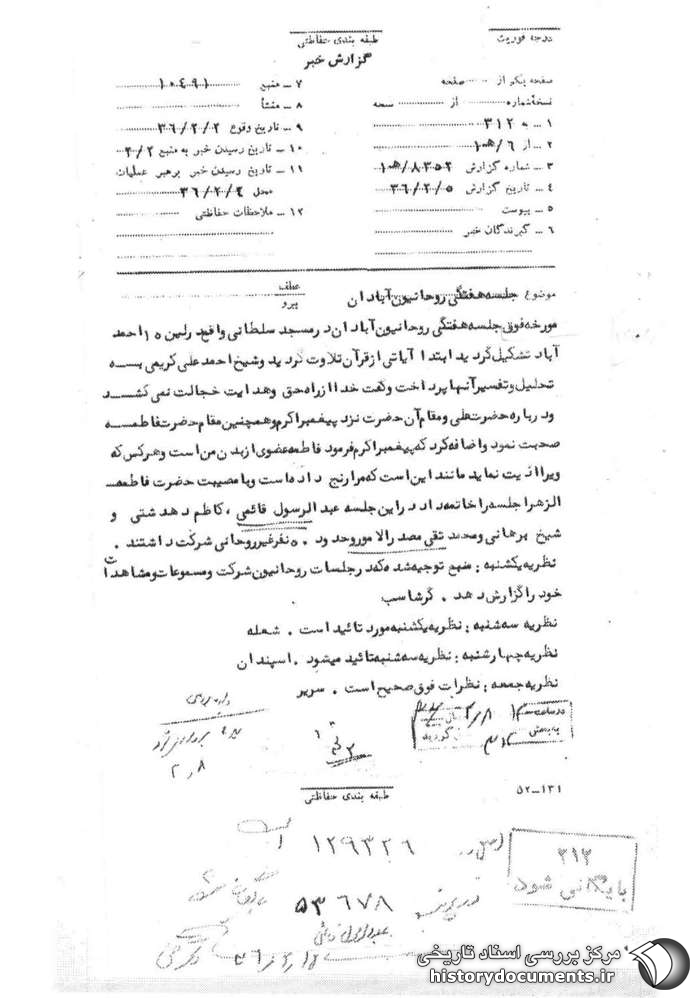 درجه فوریت
طبقه بندی حفاظتی
گزارش خبر
صفحه یکم از صفحه
نسخه شماره از نسخه
۱ ــ به ۳۱۲
۲ ــ از ۶/ﻫ۱۰
۳ ــ شماره گزارش ۸۳۵۲/ﻫ۱۰
۴ ــ تاریخ گزارش ۳۶/۲/۵
۵ ــ پیوست
۶ ــ گیرندگان خبر
۷ ــ منبع ۱۰۴۹۱
۸ ــ منشأ
۹ ــ تاریخ وقوع ۳۶/۲/۲
۱۰ ــ تاریخ رسیدن خبر به منبع ۲/۲
۱۱ ــ تاریخ رسیدن خبر برهبر عملیات
محل ۳۶/۲/۴
۱۲ ــ ملاحظات حفاظتی
موضوع جلسه هفتگی روحانیون آبادان
عطف
پیرو
مورخه فوق جلسه هفتگی روحانیون آبادان در مسجد سلطانی واقع در لین ۱۰ احمد
آباد تشکیل گردید ابتدا آیاتی از قرآن تلاوت گردید و شیخ احمد علی کریمی بــه
تحلیل و تفسیر آنها پرداخت و گفت خدا از راه حق و هدایت خجالت نمی کشــد
و در باره حضرت علی و مقام آن حضرت نزد پیغمبر اکرم و همچنین مقام حضرت فاطمــه
صحبت نمود و اضافه کرد که پیغمبر اکرم فرمود فاطمه عضوی از بدن من است و هر کس که
ویرا اذیت نماید مانند این است که مرا رنج داده است و با مصیبت حضرت فاطمه
الزهرا جلسه را خاتمه داد در این جلسه عبد الرسول قائمی ، کاظم دهدشتی و
شیخ برهانی و محمد تقی مصدر الامور و حدود ۵۰ نفر غیر روحانی شرکت داشتند .
نظریه یکشنبه : منبع توجیه شده که در جلسات روحانیون شرکت و مسموعات و مشاهدات
خود را گزارش دهد . گرشاسب
نظریه سه شنبه : نظریه یکشنبه مورد تائید است . شعله
نظریه چهارشنبه : نظریه سه شنبه تائید میشود . اسپندان
نظریه جمعه : نظرات فوق صحیح است . سریر
در ساعت ۱۴
۲/۸
به بخش ۳۱۲
گردید
۲/۸
۵۲ــ۱۳۱
طبقه بندی حفاظتی
۱۲۹۳۲۶
۵۳۶۷۸
۳۱۲
بایگانی شود
مرکز بررسی اسناد تاریخی
historydocuments.ir